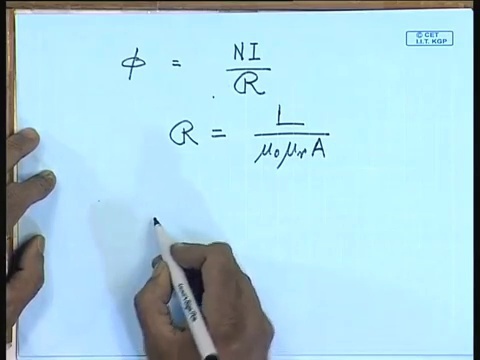 © CET
I.I.T. KGP
ϕ = NI / R
R = L / μ₀μᵣA